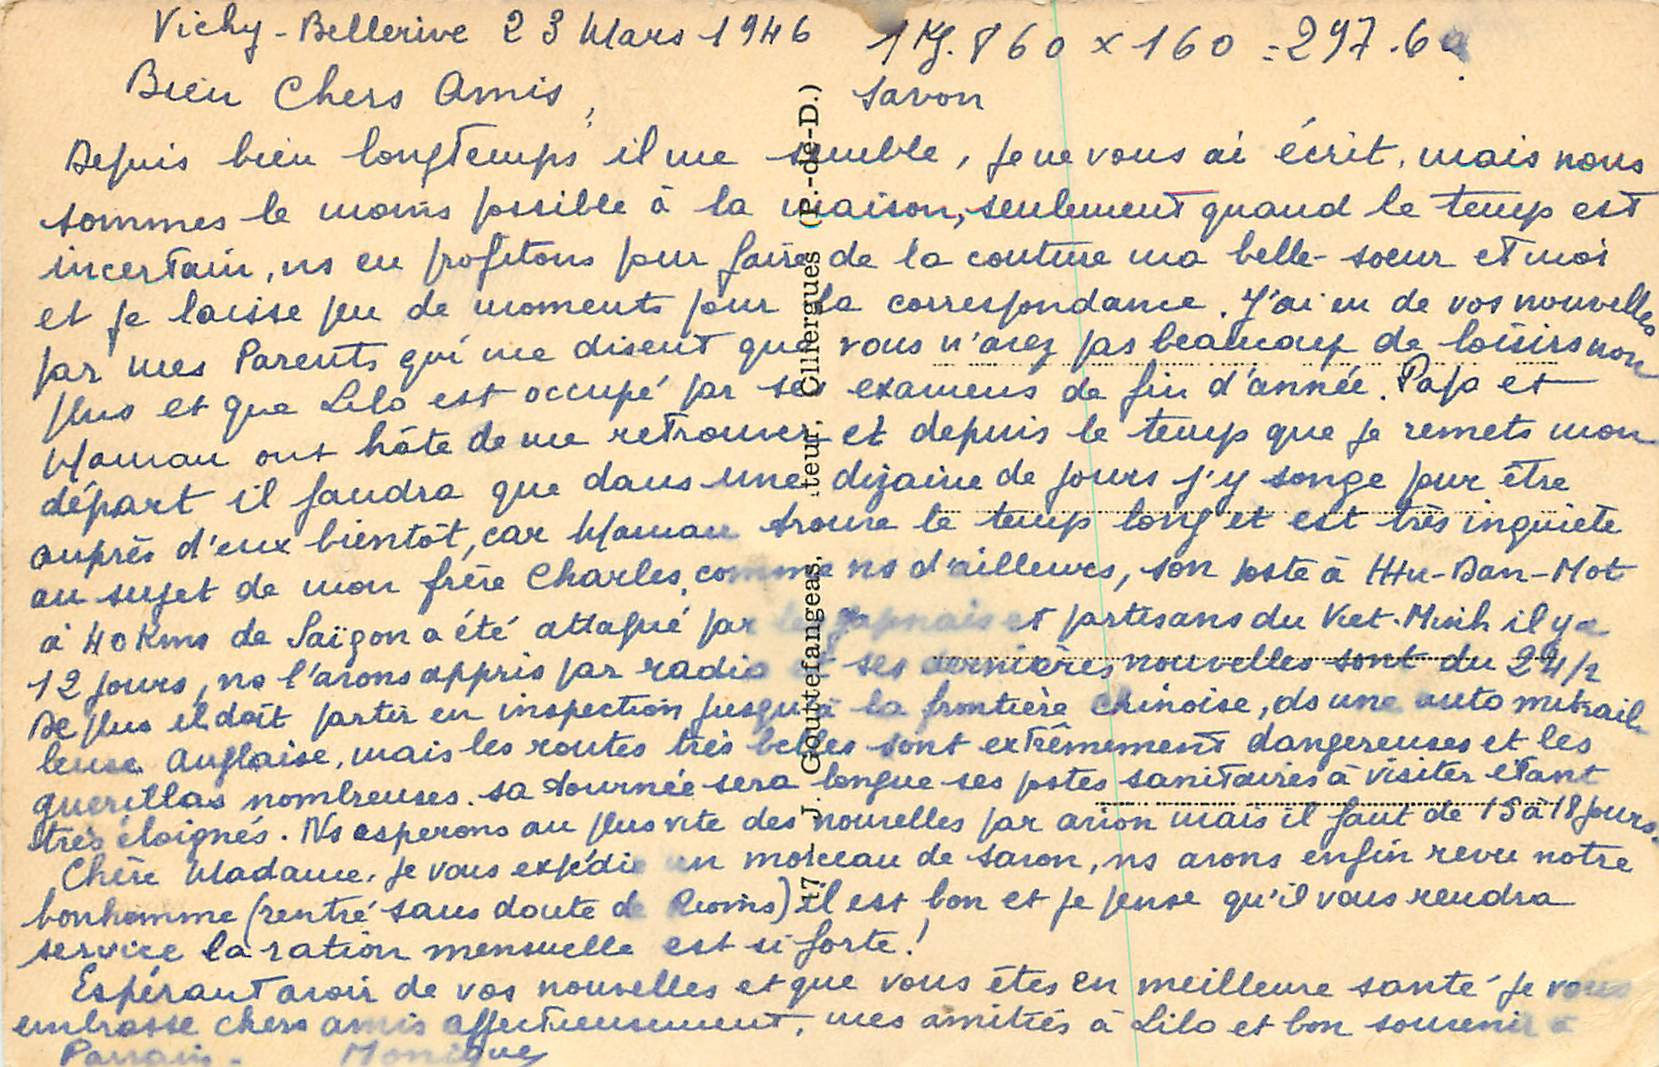 Vichy-Bellerive 23 Mars 1946
1 Kg. 860 x 160 = 297.60
Savon
Bien Chers Amis,
Depuis bien longtemps il me semble, je ne vous ai écrit, mais nous
sommes le moins possible à la maison, seulement quand le temps est
incertain, ns en profitons pour faire de la couture ma belle-soeur et moi
et je laisse peu de moments pour la correspondance. J'ai eu de vos nouvelles
par mes Parents qui me disent que vous n'avez pas beaucoup de loisirs non
plus et que Lilo est occupé par ses examens de fin d'année. Papa et
Maman ont hâte de me retrouver et depuis le temps que je remets mon
départ il faudra que dans une dizaine de jours j'y songe pour être
auprès d'eux bientôt, car Maman trouve le temps long et est très inquiète
au sujet de mon frère Charles, comme ns d'ailleurs, son poste à Thu-Dan-Mot
à 40 Kms de Saïgon a été attaqué par les Japonais et partisans du Viet-Minh il y a
12 jours, ns l'avons appris par radio et ses dernières nouvelles sont du 24/2
De plus il doit partir en inspection jusqu'à la frontière chinoise, ds une auto mitrail-
leuse Anglaise, mais les routes très belles sont extrêmement dangereuses et les
guerillas nombreuses. sa tournée sera longue ses postes sanitaires à visiter étant
très éloignés. Ns esperons au plus vite des nouvelles par avion mais il faut de 15 à 18 jours.
Chère Madame, je vous expédie un morceau de savon, ns avons enfin revu notre
bonhomme (rentré sans doute de Rioms) il est bon et je pense qu'il vous rendra
service la ration mensuelle est si forte!
Espérant avoir de vos nouvelles et que vous êtes en meilleure santé je vous
embrasse chers amis affectueusement, mes amitiés à Lilo et bon souvenir à
Parrain. Monique
17 J. Gouttefangeas, teur, Olliergues (P.-de-D.)